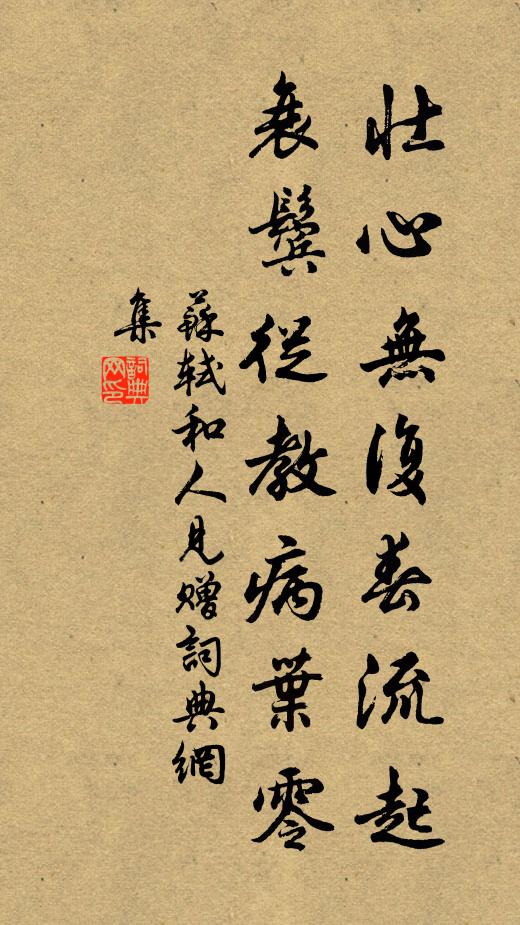 壯心無復春流起
衰鬢從教病葉零
蘇軾和人見贈詞典網
集
詞典
网印